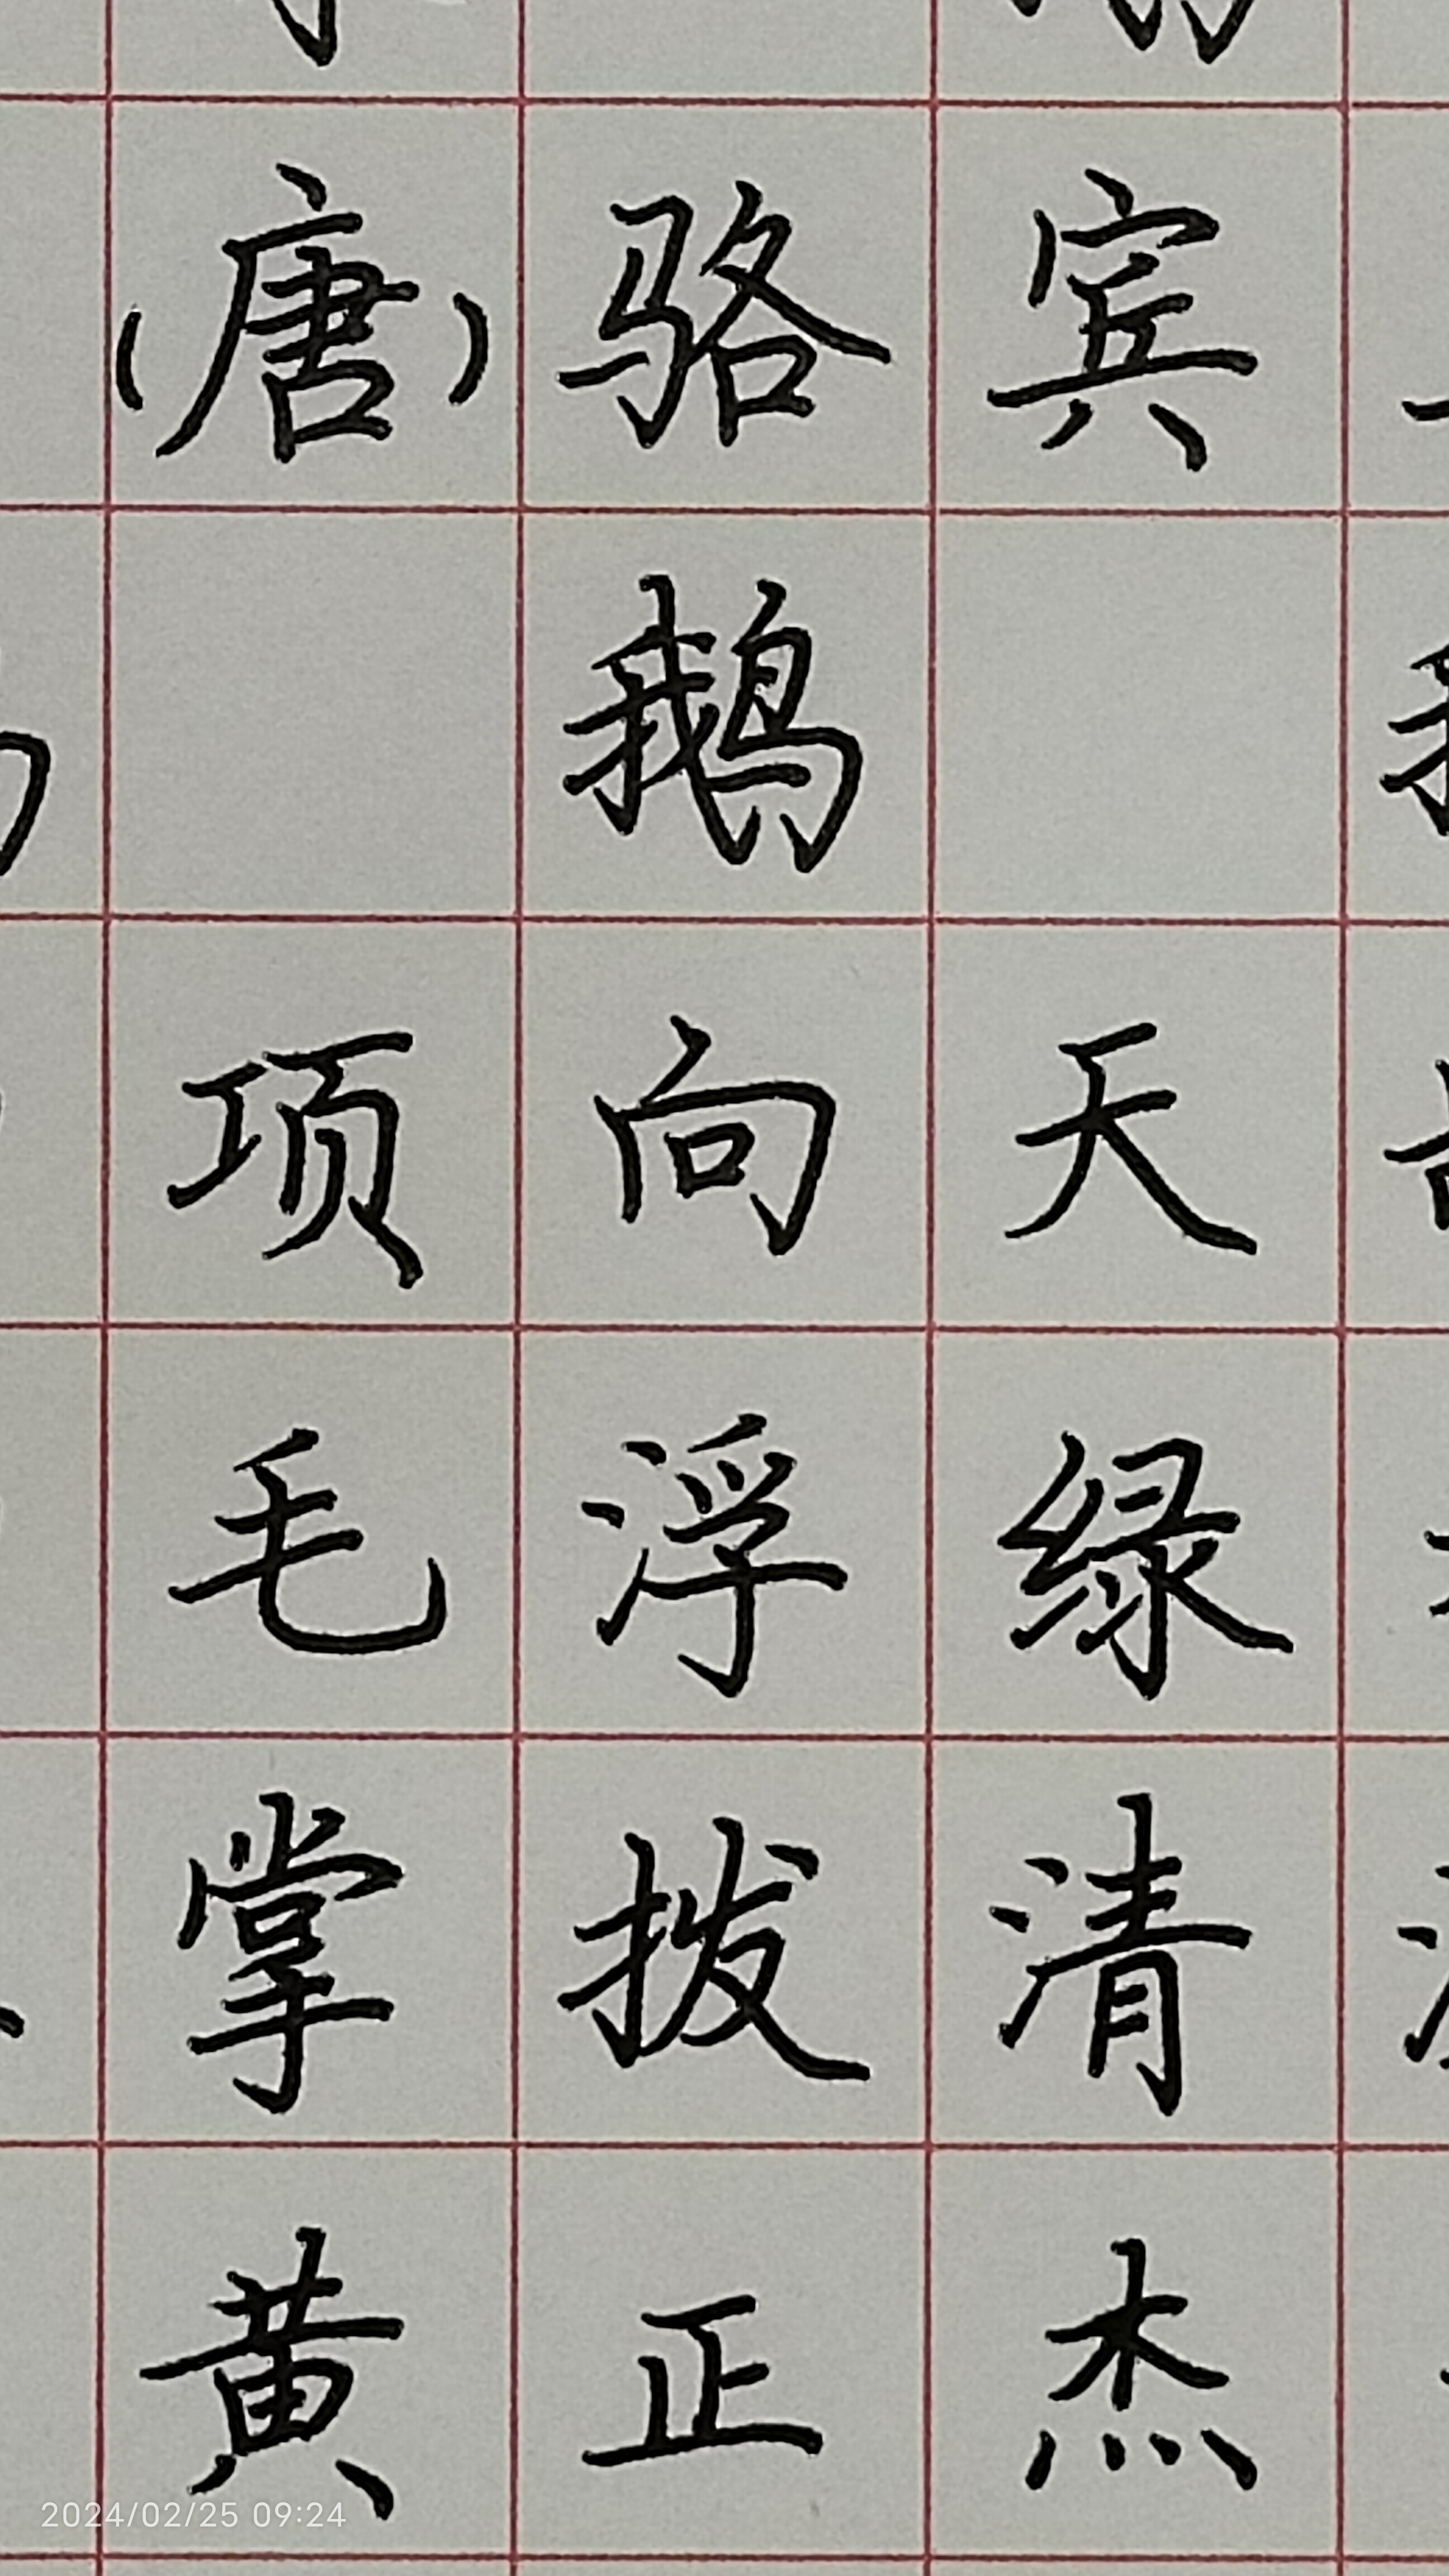 (唐)骆宾
鹅
项向天
毛浮绿
掌拨清
黄正杰
2024/02/25 09:24